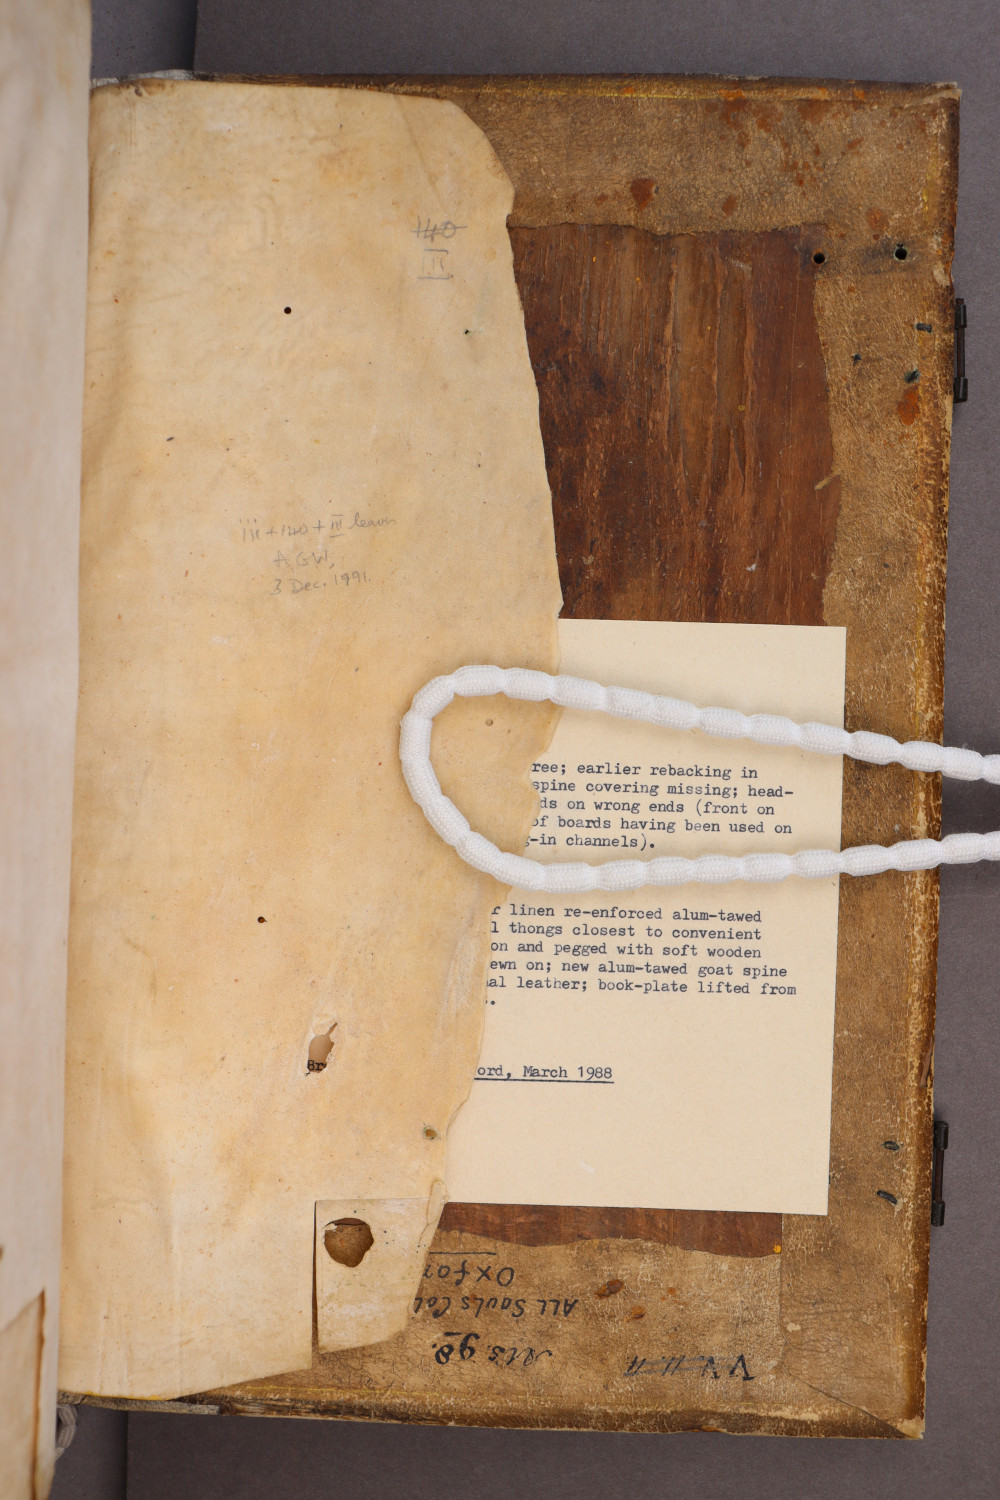 140
iii + 140 + iii leaves
AGW,
3 Dec. 1991.
ree; earlier rebacking in
spine covering missing; head-
ds on wrong ends (front on
of boards having been used on
g-in channels).
r linen re-enforced alum-tawed
l thongs closest to convenient
on and pegged with soft wooden
ewn on; new alum-tawed goat spine
nal leather; book-plate lifted from
s.
Br
ord, March 1988
V V. 11. 11
Ms. 98.
ALL Souls Col
Oxfor